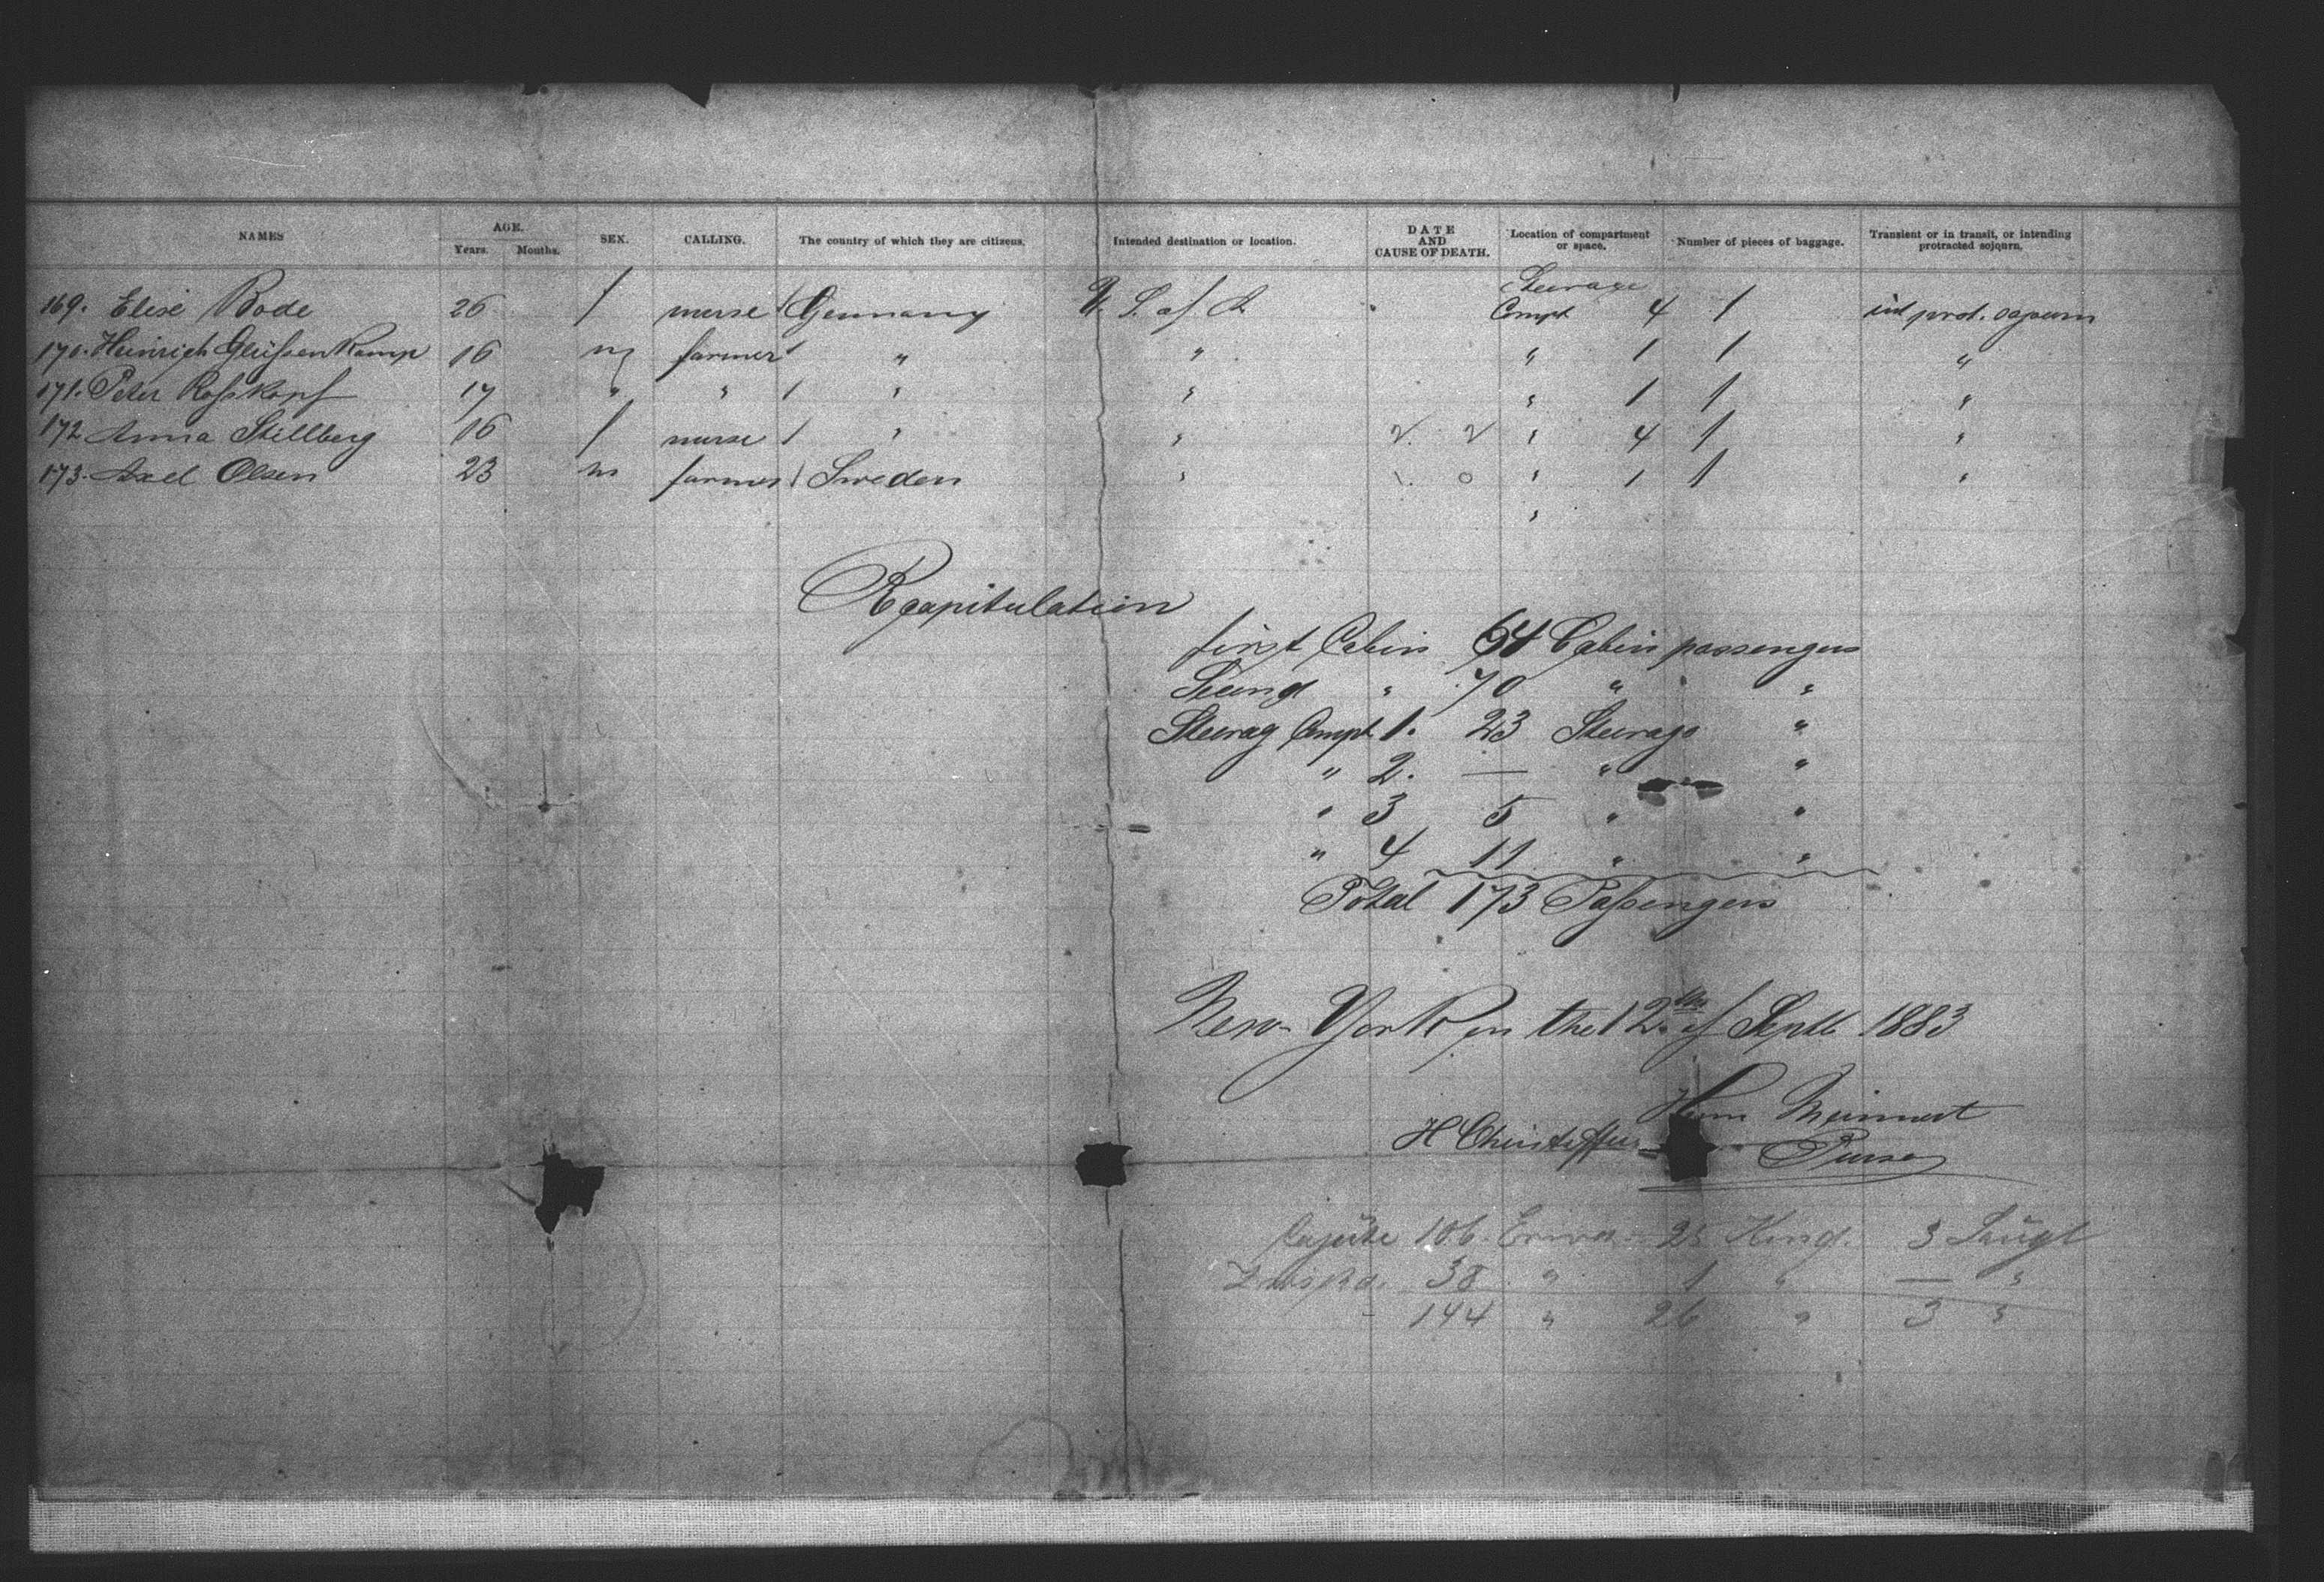 NAMES AGE. SEX. CALLING. The country of which they are citizens. Intended destination or location. DATE AND CAUSE OF DEATH. Location of compartment or space. Number of pieces of baggage. Transient or in transit, or intending protracted sojourn.
Years. Months.
Steerage
169. Elise Bode 26 f nurse Germany U. S. of A Compt 4 1 int prot. sojourn
170. Heinrich Glüssenkamp 16 m farmer " " " 1 1 "
171. Peter Rosskopf 17 " " " " " 1 1 "
172 Anna Stellberg 16 f nurse " " " 4 1 "
173. Axel Olsen 23 m farmer Sweden " " 1 1 "
"
Recapitulation
first Cabin 64 Cabin passengers
Second " 70 " "
Steerag Compt 1. 23 Steerage "
" 2. — " "
" 3 5 " "
" 4 11 " "
Total 173 Passengers
New-York on the 12th of Septb 1883
Herm Meinnert
H Christoffers
Purser
Cajüte 106. Erwa 25 Kind. 3 Säugl
Zwisda. 38 " 1 " — "
144 " 26 " 3 "